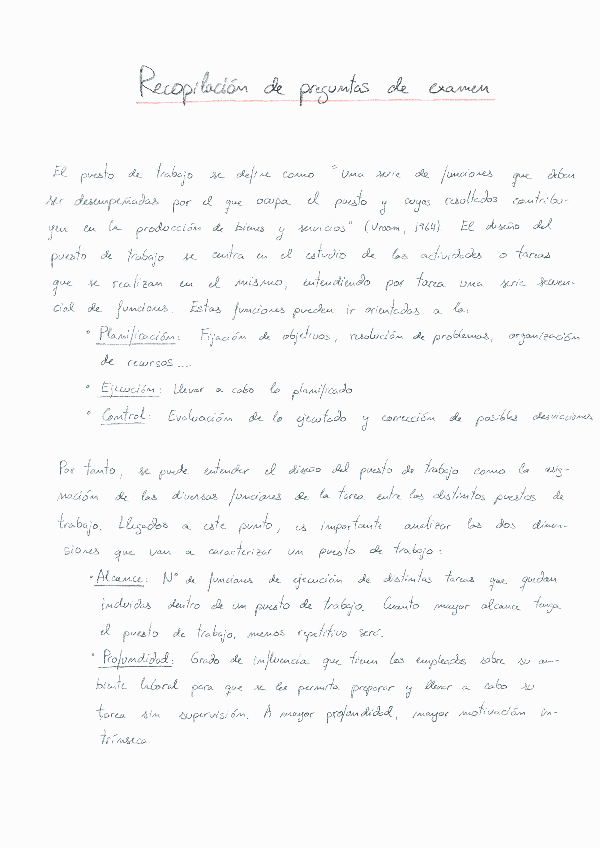 Recopilación de preguntas de examen
El puesto de trabajo se define como "Una serie de funciones que deben
ser desempeñadas por el que ocupa el puesto y cuyos resultados contribu-
yen en la producción de bienes y servicios" (Vroom, 1964) El diseño del
puesto de trabajo se centra en el estudio de las actividades o tareas
que se realizan en el mismo, entendiendo por tarea una serie secuen-
cial de funciones. Estas funciones pueden ir orientadas a la:
• Planificación: Fijación de objetivos, resolución de problemas, organización
de recursos....
• Ejecución: Llevar a cabo lo planificado
• Control: Evaluación de lo ejecutado y corrección de posibles desviaciones
Por tanto, se puede entender el diseño del puesto de trabajo como la asig-
nación de las diversas funciones de la tarea entre los distintos puestos de
trabajo. Llegados a este punto, es importante analizar las dos dimen-
siones que van a caracterizar un puesto de trabajo:
• Alcance: Nº de funciones de ejecución de distintas tareas que quedan
incluidas dentro de un puesto de trabajo. Cuanto mayor alcance tenga
el puesto de trabajo, menos repetitivo será.
• Profundidad: Grado de influencia que tienen los empleados sobre su am-
biente laboral para que se les permita preparar y llevar a cabo su
tarea sin supervisión. A mayor profundidad, mayor motivación in-
trínseca